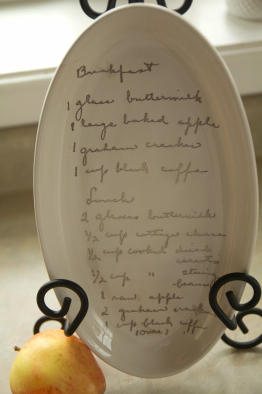 Breakfast
1 glass buttermilk
1 large baked apple
1 graham cracker
1 cup black coffee
Lunch
2 glasses buttermilk
1/2 cup cottage cheese
1/2 cup cooked diced
carrots
1/2 cup " string
beans
1 raw apple
2 graham
cup black coffee